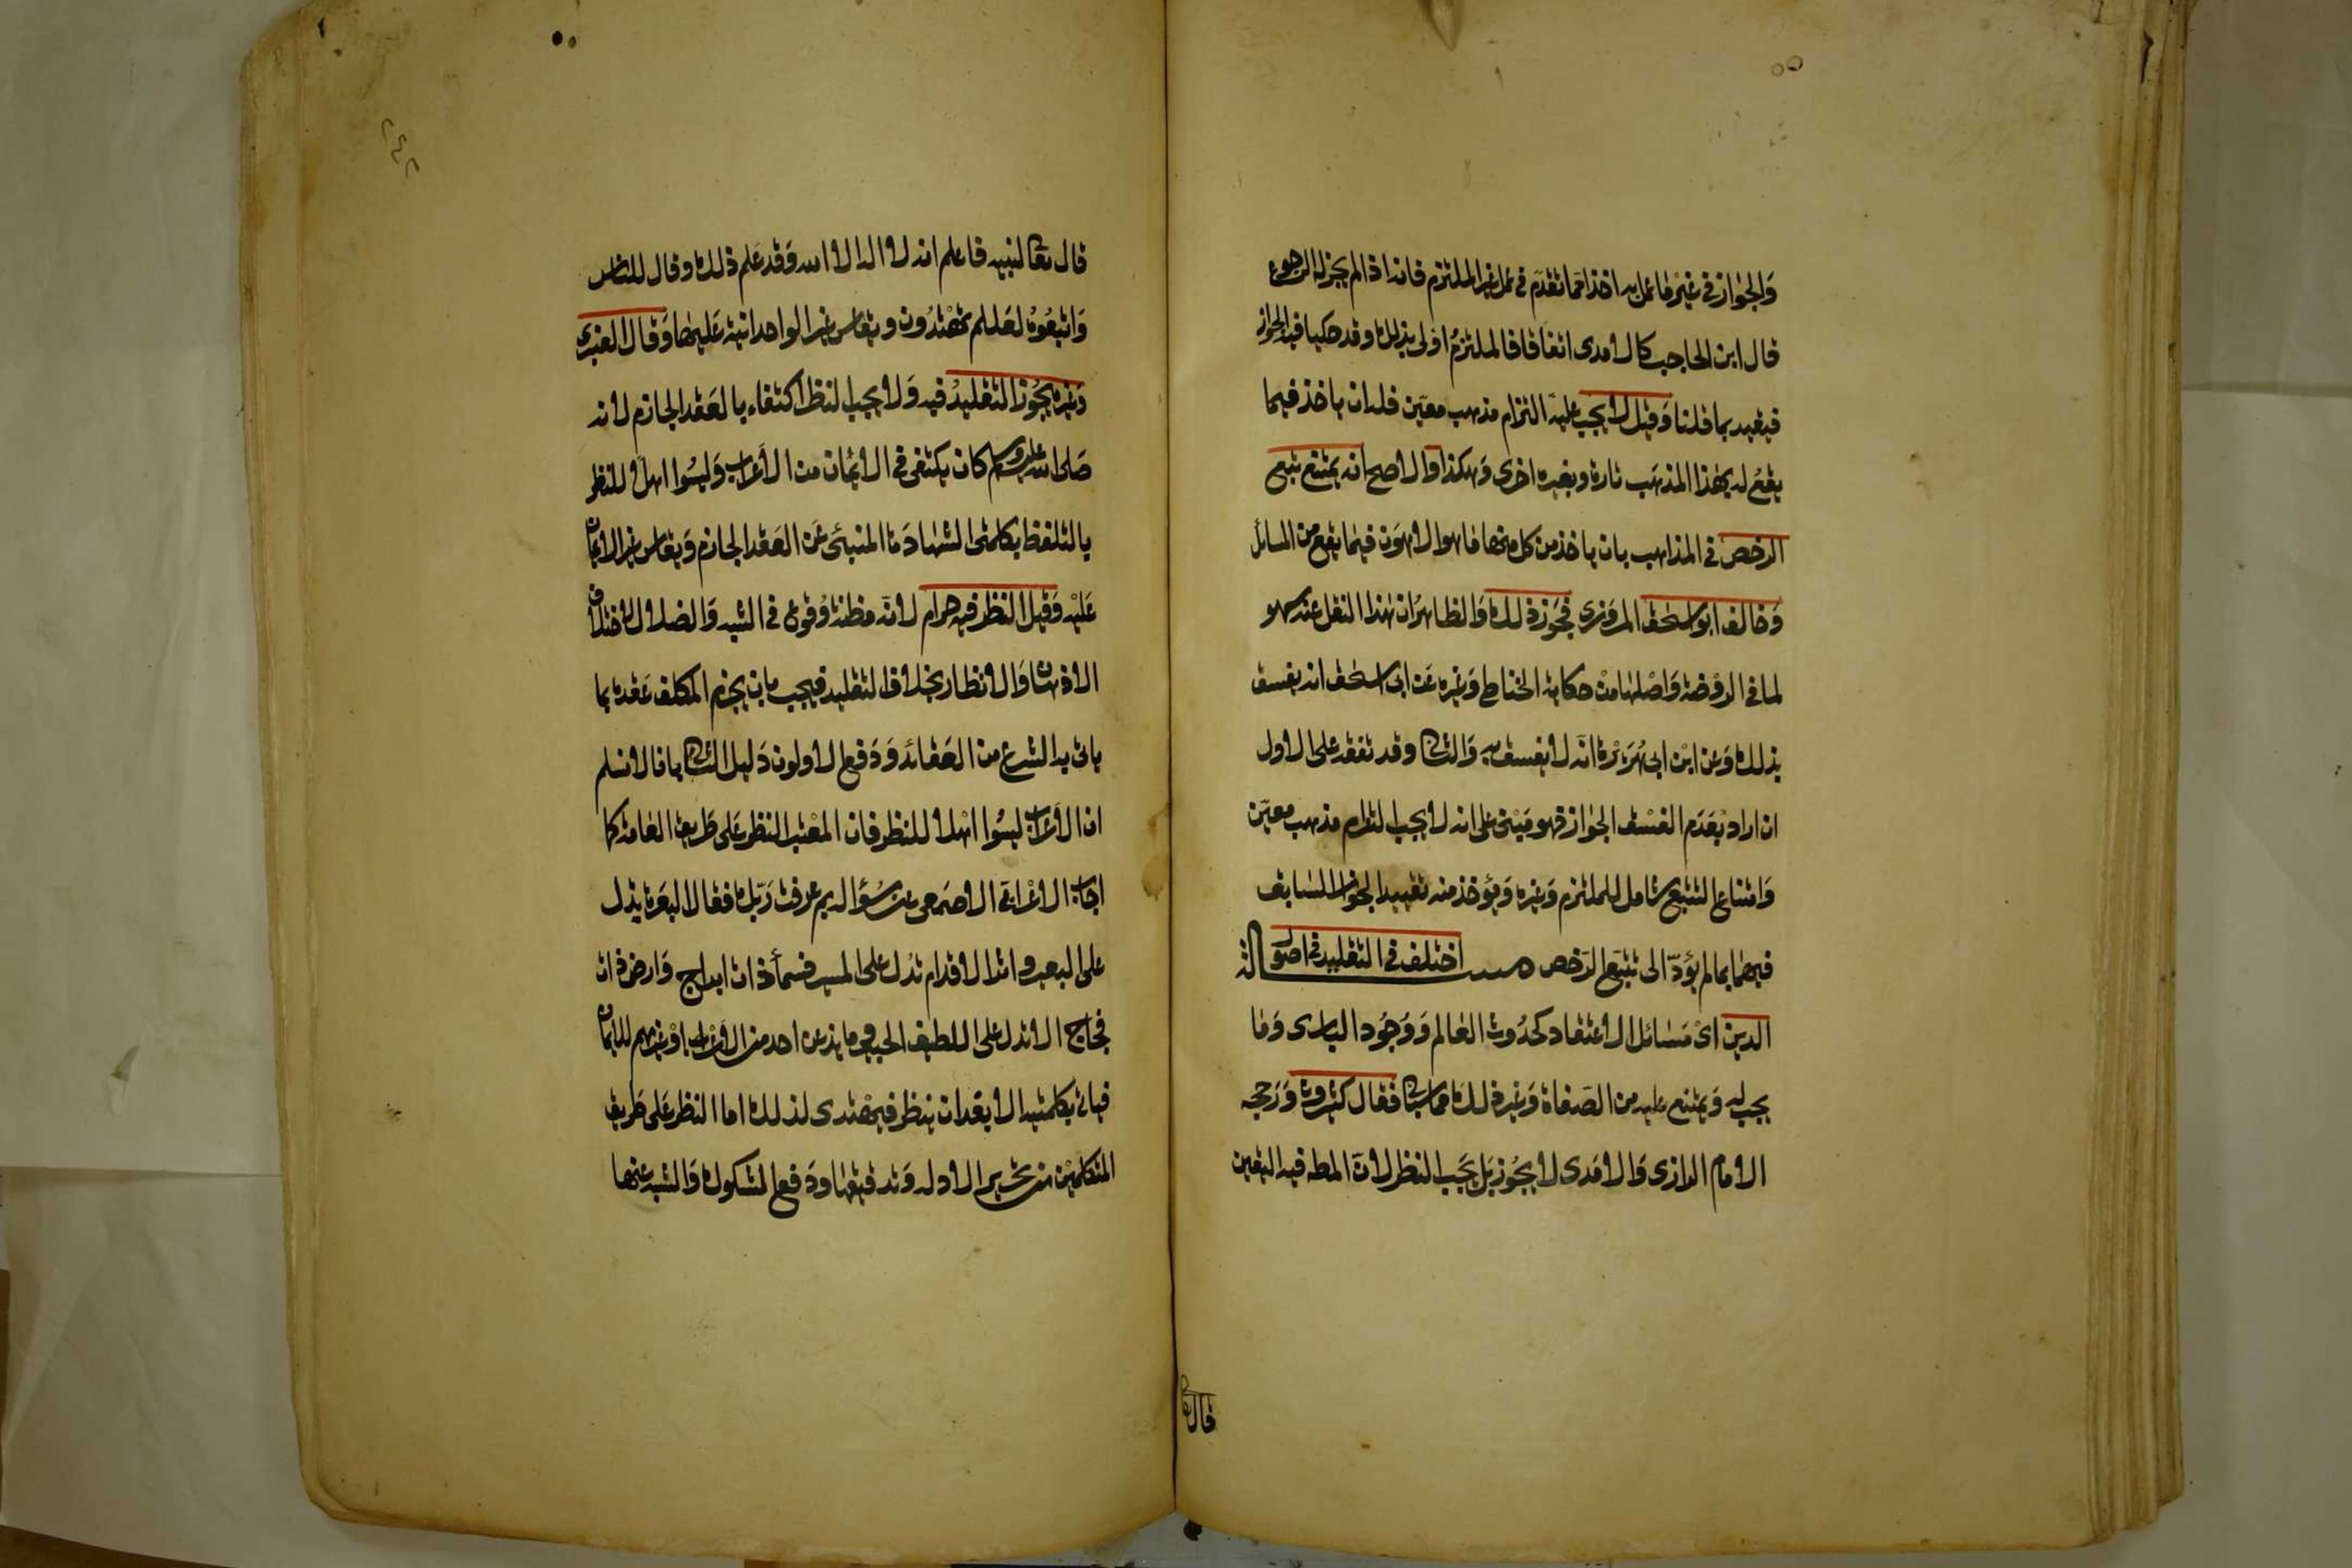 وَالجواز في غيْر ما عمل به اخذا ممّا تقدّم في عمل غير الملتزم فانه اذا لم يجز له الرجوع
قال ابن الحاجب كالامدى اتفاقا فالملتزمُ اوْلى بذلك وقد حكيا فيه الجواز
فيقيد بما قلنا وَقيل لا يجب عليه التزام مذهب معيّن فله ان ياخذ فيما
يقعُ له بهٰذا المذهَب تارة وبغيره اخرى وَهكذا وَالاصح انه يمتنع تتبع
الرخص في المذاهب بان ياخذ من كل منها ما هو الاهوَن فيما يقع من المسائل
وَخالف ابو اسحٰق المرْوزى فجَوّز ذلك وَالظاهرُ ان هٰذا النقل عنه سهو
لما في الروْضة وَاصْلها منْ حكاية الحناطى وَغيره عَن ابى اسحٰق انه يفسق
بذلك وَعن ابْن ابى هُرَيْرة انّه لا يفسق به وَالثانى وقد تفقه على الاول
ان اراد بعَدَم الفسْق الجواز فهو مَبْنى على انه لا يجب التزام مذهب معيّن
وَامتناع التتبع شامل للملتزم وَغيره وَيؤخذ منه تقييد الجواز السٰابق
فيهما بما لم يؤدّ الى تتبّع الرّخص مسئلة اختلف في التقليد في اصول
الدين اىْ مَسٰائل الاعتقاد كحدُوث العٰالم وَوُجُود البارى وَمٰا
يجب له وَيمتنع عليه من الصّفاة وَغير ذلك مما سياتى فقال كثيرون وَرَجحه
الامٰام الرازى وَالامَدى لا يجُوز بَل يجَب النظر لانّ المطـ فيه اليقين
قال تعا
قال تعالى لنبيه فاعلم انه لا اله الا الله وَقد عَلم ذلك وقال للناس
وَاتبعُوهُ لعَلكم تهْتدُون ويقاس غير الواحدانية عَليهٰا وَقال العنبرى
وَغيره يجُوز التقليدُ فيه وَلا يجب النظر اكتفاء بالعَقد الجازم لانه
صَلى الله عليه وسلم كان يكتفى في الايْمان من الاَعراب وَليسُوا اهلا للنظر
بالتلفظ بكلمتى الشهٰادَة المنبئى عَن العَقد الجازم وَيقاس غير الايمان
عَليْه وَقيل النظر فيه حرام لانّه مظنة وُقوع في الشبه وَالضلال لاختلاف
الاذهان وَالانظار بخلاف التقليد فيجب بان يجزم المكلف عَقده بما
ياتى به الشرع من العَقائد وَدَفع الاولون دَليل الثانى بانا لا نسلم
ان الاَعراب ليسُوا اهْلا للنظر فان المعْتبر النظر عَلى طَريق العٰامة كما
اجاب الاعْرابى الاصْمعى عن سُؤاله بم عرفت رَبّك فقال البعَرة يدل
على البعير واثر الاقدام تدُل على المسير فسمٰآء ذات ابراج وَارض ذات
فجاج الا تدل على اللطيف الخبير وما يذعن احد من الاعراب اوْ غيرهم للايمان
فياتى بكلمتيه الا بعَد ان ينظر فيهْتدى لذلك اما النظر عَلى طَريق
المتكلميْن من تحرير الادلة وَتدقيقهٰا وَدَفع الشكوك وَالشبه عنها